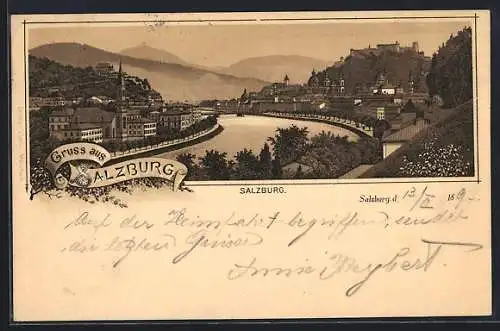 Gruss aus
SALZBURG.
SALZBURG.
Salzburg d. 13/IX 189
Auf der Heimfahrt begriffen, sendet
die letzten Grüsse
Annie Weybert.